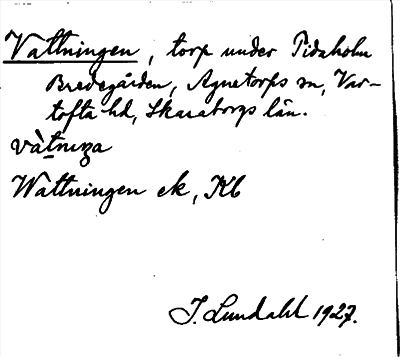 Vattningen, torp under Tidaholm
Bredegården, Agnetorps sn, Var-
tofta hd, Skaraborgs län.
Wattningen ek, Kb
I. Lundahl 1927.